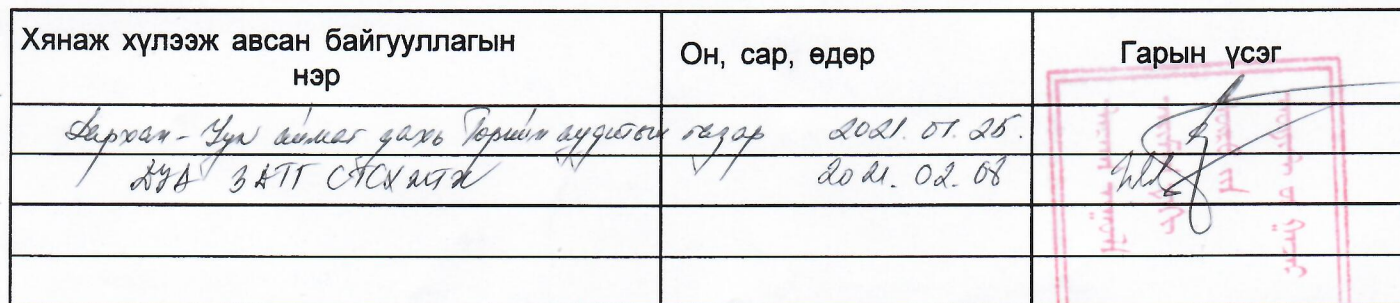 Хянаж хүлээж авсан байгууллагын нэр
Он, сар, өдөр
Гарын үсэг
Дархан-Уул аймаг дахь Төрийн аудитын газар 2021. 01. 25.
ДУА ЗДТГ СТСХЖТХ 2021. 02. 08